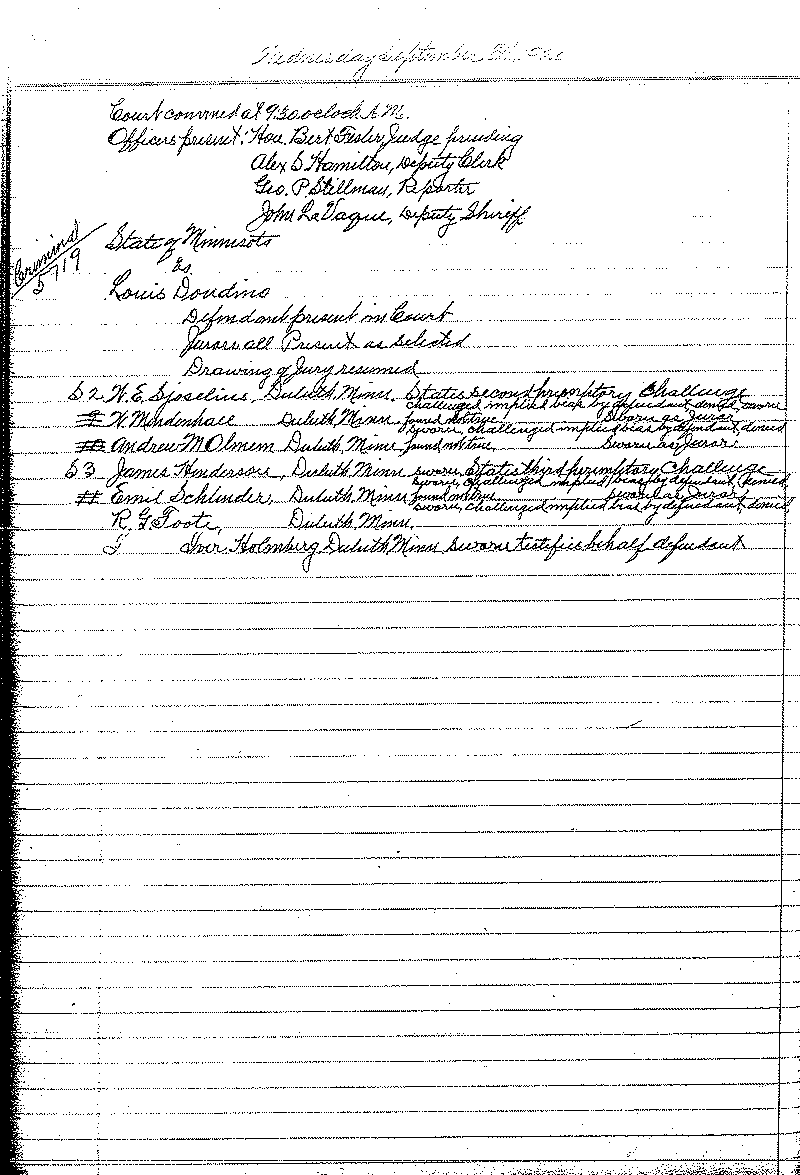 Wednesday September
Court convened at 9:30 oclock A.M.
Officers present: Hon. Bert Fesler, Judge presiding
Alex S. Hamilton, Deputy Clerk
Geo. P. Stillman, Reporter
John LaVaque, Deputy Shireff
Criminal
5719
State of Minnesota
vs.
Louis Dondino
Defendant present in Court
Jurors all Present as selected
Drawing of Jury resumed
S 2 N. E. Sjoselius, Duluth Minn. States second premptory Challenge
challenged implied bias by defendant denied sworn
9 W. Mendenhall Duluth Minn found not true Sworn as Juror
sworn, challenged implied bias by defendant, denied
10 Andrew M Olmem Duluth Minn found not true, Sworn as Juror
S 3 James Henderson, Duluth Minn sworn States third peremptory Challenge
sworn, challenged implied bias by defendant, denied
11 Emil Schlinder, Duluth Minn found not true sworn as Juror
sworn, challenged implied bias by defendant denied
R. G. Foote, Duluth Minn.
Iver Holmberg Duluth Minn sworn testifies behalf defendant